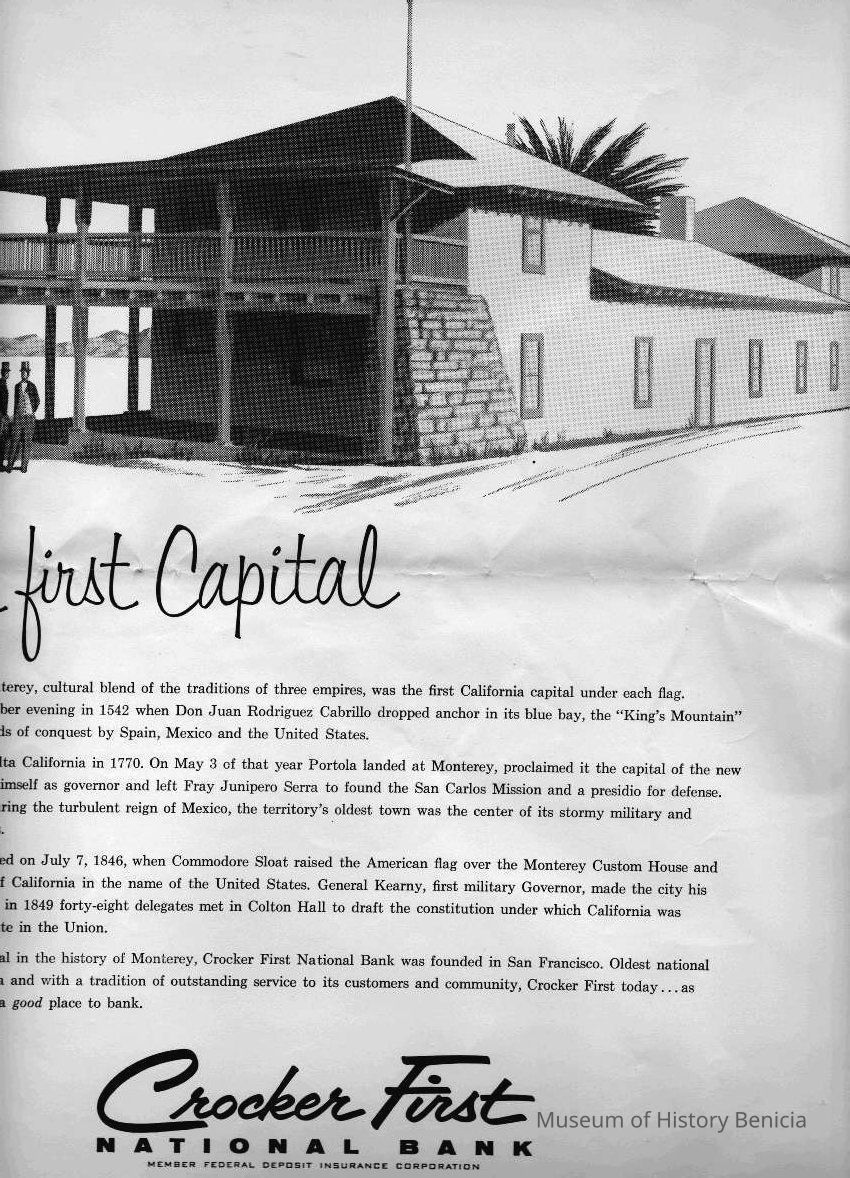 first Capital
terey, cultural blend of the traditions of three empires, was the first California capital under each flag.
ber evening in 1542 when Don Juan Rodriguez Cabrillo dropped anchor in its blue bay, the “King’s Mountain”
ds of conquest by Spain, Mexico and the United States.
lta California in 1770. On May 3 of that year Portola landed at Monterey, proclaimed it the capital of the new
imself as governor and left Fray Junipero Serra to found the San Carlos Mission and a presidio for defense.
ring the turbulent reign of Mexico, the territory’s oldest town was the center of its stormy military and
ed on July 7, 1846, when Commodore Sloat raised the American flag over the Monterey Custom House and
f California in the name of the United States. General Kearny, first military Governor, made the city his
in 1849 forty-eight delegates met in Colton Hall to draft the constitution under which California was
te in the Union.
al in the history of Monterey, Crocker First National Bank was founded in San Francisco. Oldest national
a and with a tradition of outstanding service to its customers and community, Crocker First today...as
a good place to bank.
Crocker First
NATIONAL BANK
MEMBER FEDERAL DEPOSIT INSURANCE CORPORATION
Museum of History Benicia